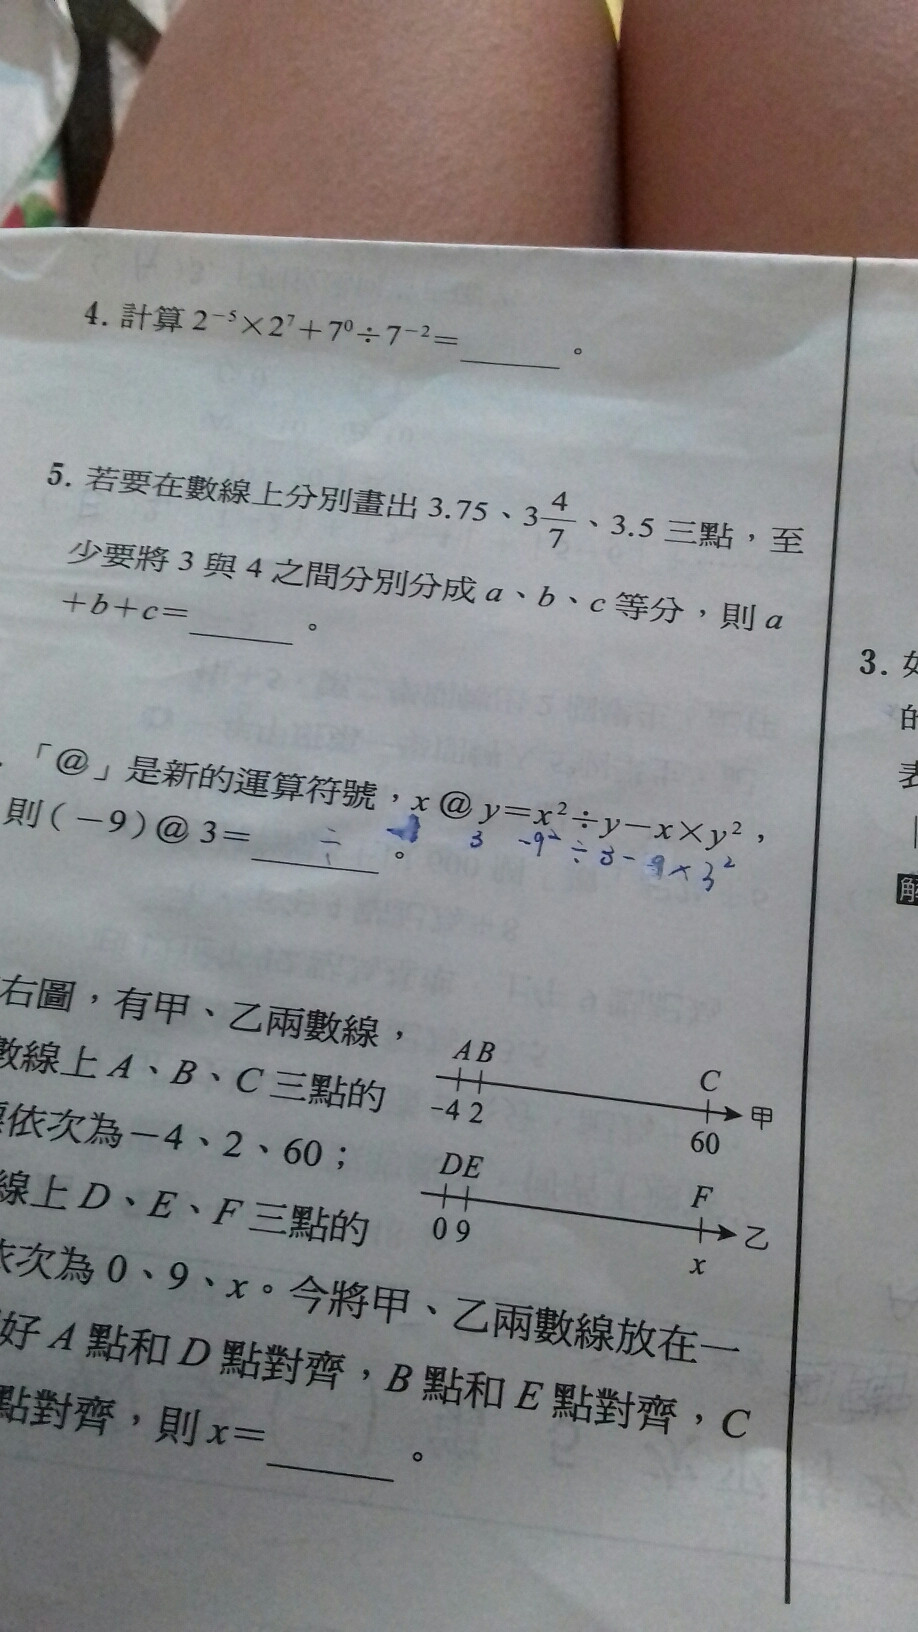 4. 計算 2⁻⁵×2⁷+7⁰÷7⁻²=______。
5. 若要在數線上分別畫出 3.75、3 4/7、3.5 三點,至
少要將 3 與 4 之間分別分成 a、b、c 等分,則 a
+b+c=______。
「@」是新的運算符號,x @ y=x²÷y-x×y²,
則(-9)@ 3=______。
÷ 3 -9² ÷ 3 - 9 × 3²
右圖,有甲、乙兩數線,
數線上 A、B、C 三點的
依次為-4、2、60;
線上 D、E、F 三點的
依次為 0、9、x。今將甲、乙兩數線放在一
好 A 點和 D 點對齊,B 點和 E 點對齊,C
點對齊,則 x=______。
A B C
-4 2 60 甲
D E F
0 9 x 乙
3.
的
表
解